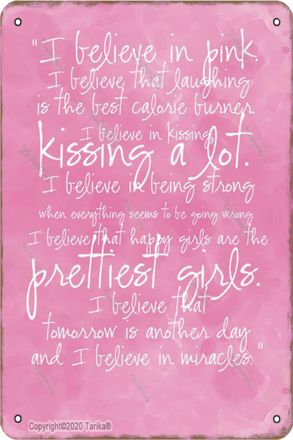 "I believe in pink.
I believe that laughing
is the best calorie burner.
I believe in kissing,
kissing a lot.
I believe in being strong
when everything seems to be going wrong.
I believe that happy girls are the
prettiest girls.
I believe that
tomorrow is another day
and I believe in miracles."
Copyright©2020 Tarika®